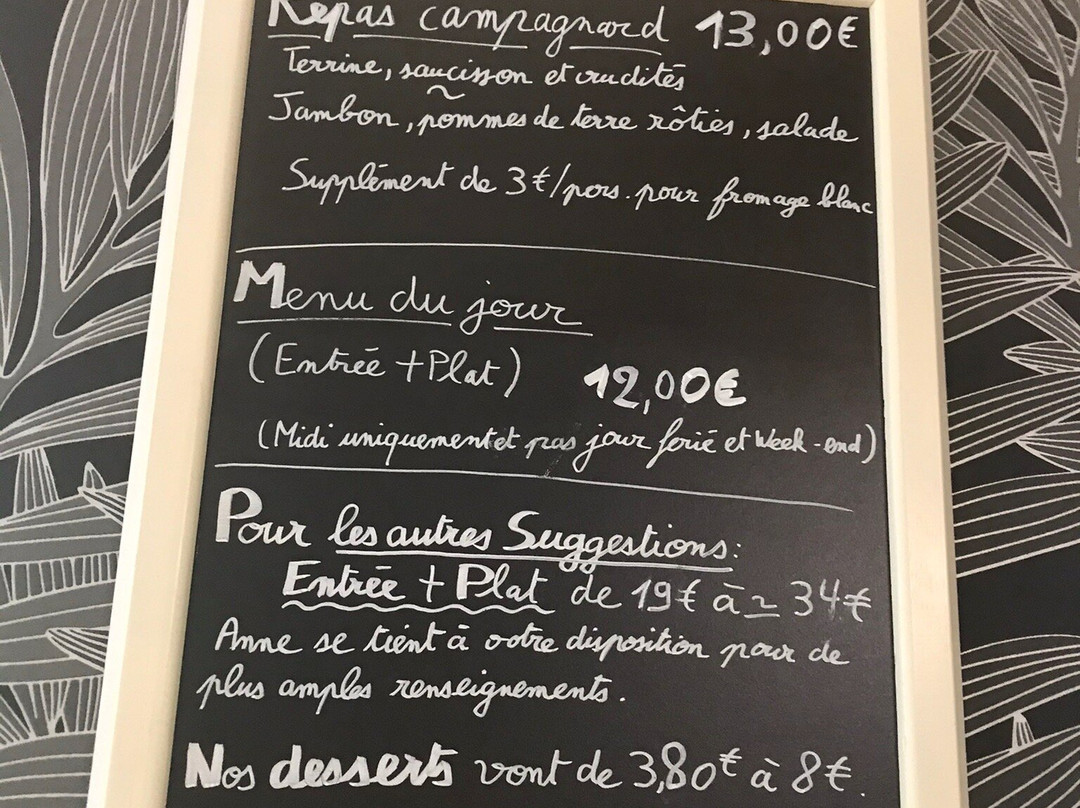 Repas campagnard 13,00€
Terrine, saucisson et crudités
Jambon, pommes de terre rôties, salade
Supplément de 3€/pers. pour fromage blanc
Menu du jour
(Entrée + Plat) 12,00€
(Midi uniquement et pas jour ferié et Week-end)
Pour les autres Suggestions:
Entrée + Plat de 19€ à ≃ 34€
Anne se tient à votre disposition pour de
plus amples renseignements.
Nos desserts vont de 3,80€ à 8€.